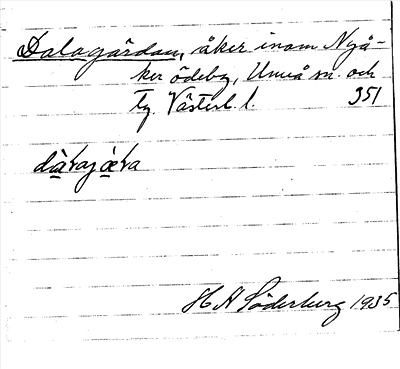 Dalagärdan, åker inom Nyå-
ker ödeby, Umeå sn. och
tg. Västerb. l. 351
dàλajæ̀λa
H A Söderberg 1935